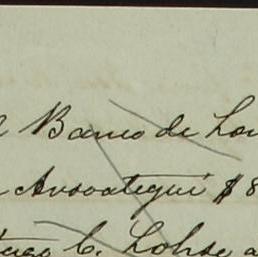 Banco de Lon
Anzoategui $ 8
C. Lohse a